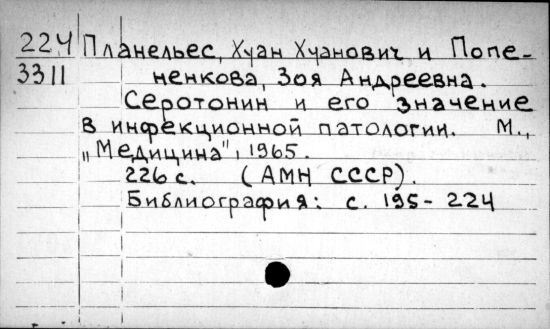 224 Планельес, Хуан Хуанович и Попе-
3311 ненкова, Зоя Андреевна.
Серотонин и его значение
в инфекционной патологии. М.,
„Медицина", 1965.
226 с. (АМН СССР).
Библиография: с. 195-224